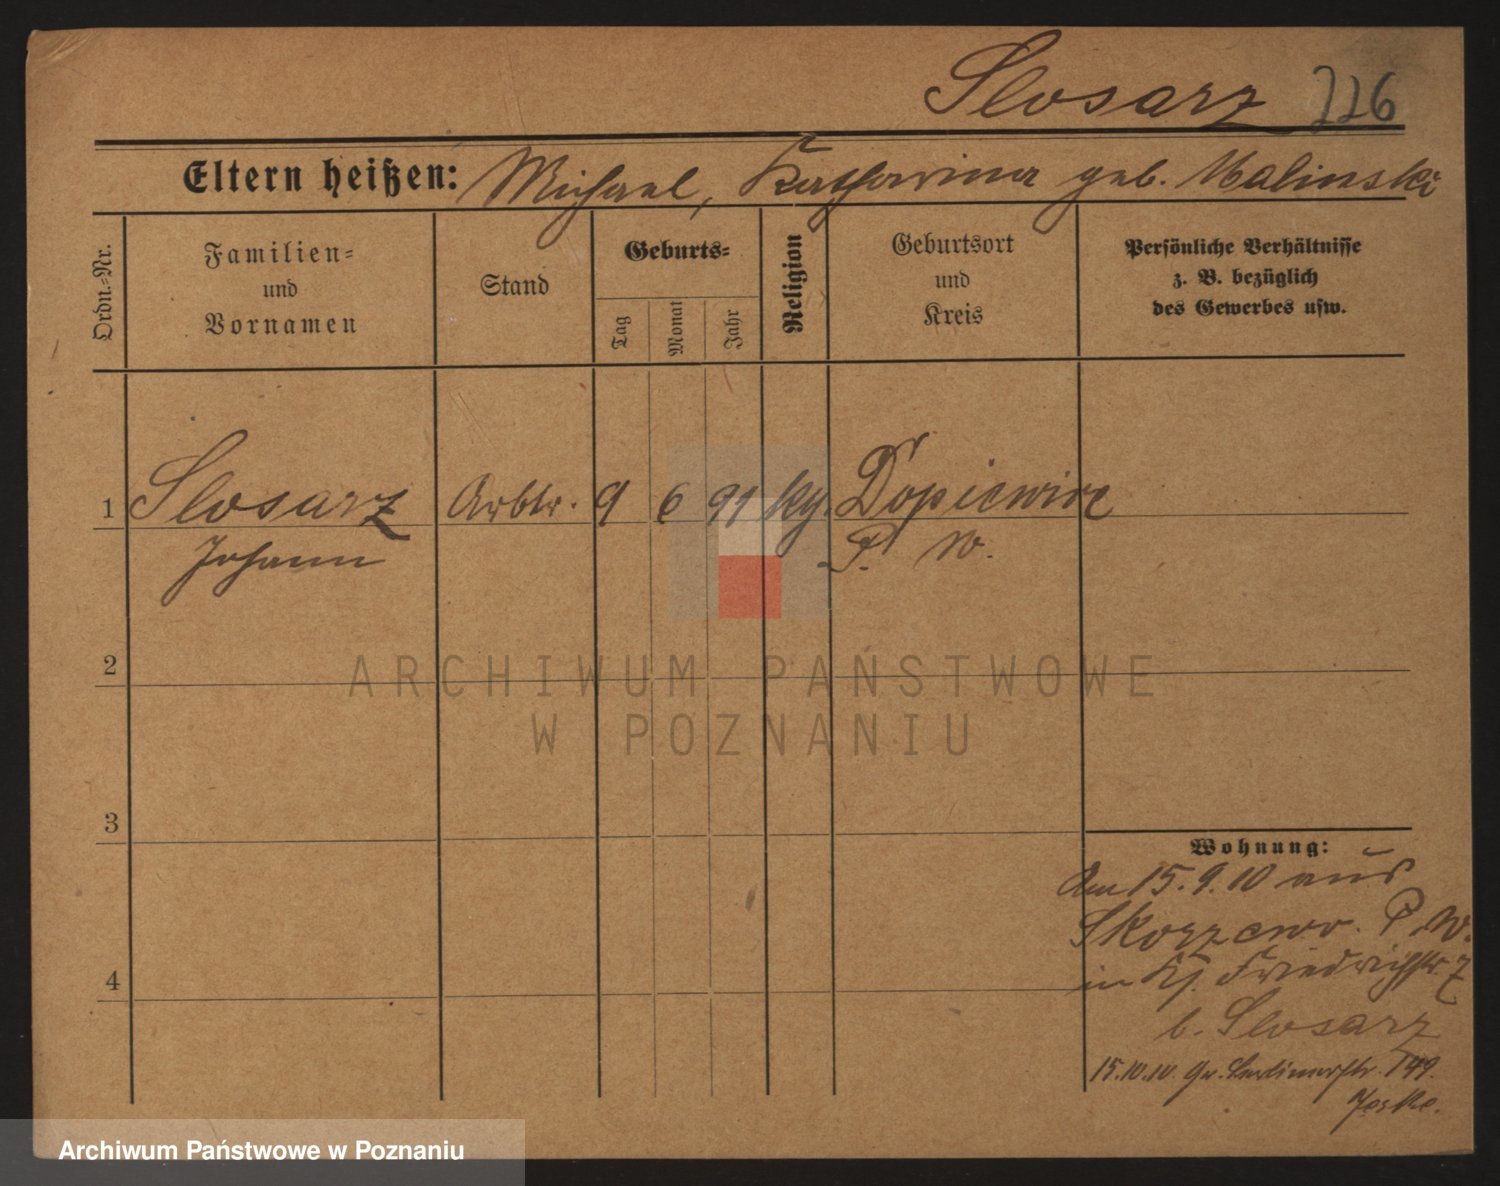 Slosarz 226
Eltern heißen: Michael, Katharina geb. Malinski
Ordn.-Nr.
Familien=
und
Vornamen
Stand
Geburts=
Tag
Monat
Jahr
Religion
Geburtsort
und
Kreis
Persönliche Verhältnisse
z. B. bezüglich
des Gewerbes usw.
1 Slosarz Arbtr. 9 6 91 kg. Dopiewiec
Johann P. W.
2
3
4
Wohnung:
Am 15.9.10 aus
Skorzewo. P. W.
in Friedrichstr. 7
b. Slosarz
15.10.10. Gr. Berlinerstr. 149.
Jeske.
ARCHIWUM PAŃSTWOWE
W POZNANIU
Archiwum Państwowe w Poznaniu